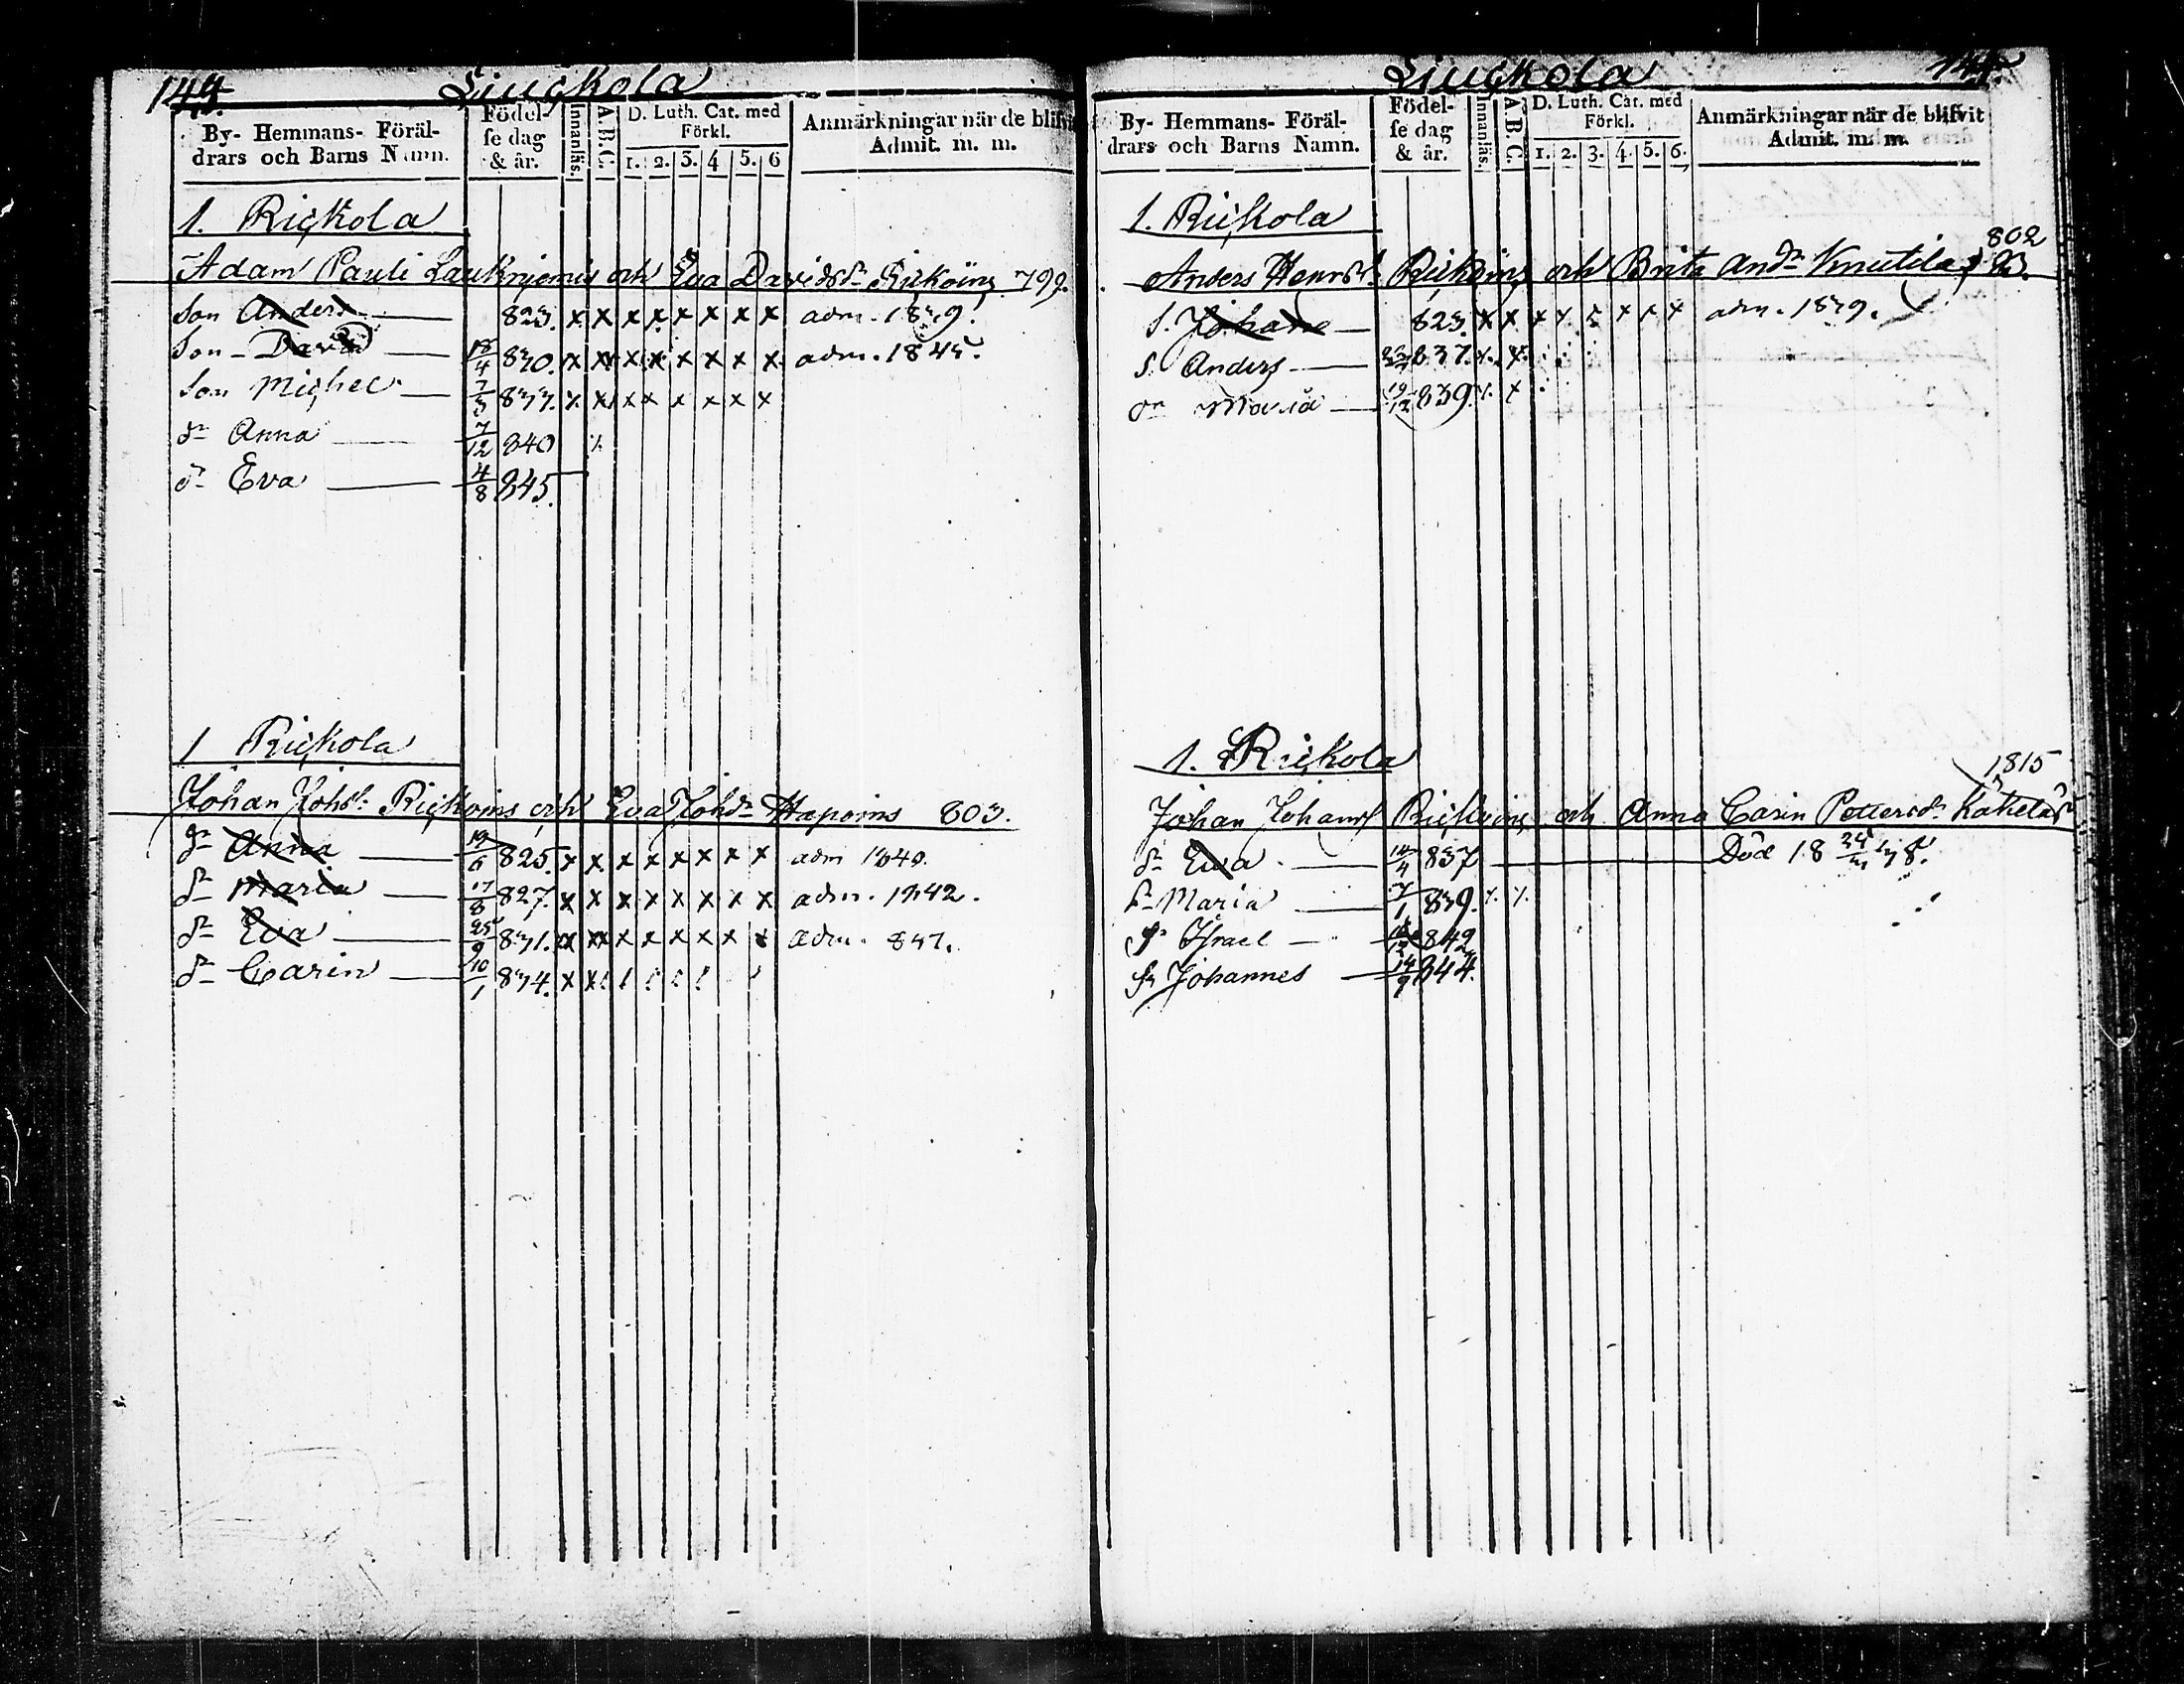 144.
Liuckola
By- Hemmans- Föräl-
drars och Barns Namn.
Födel-
se dag
& år.
Innanläs.
A.B.C.
D. Luth. Cat. med
Förkl.
1. 2. 3. 4 5. 6
Anmärkningar när de blifvit
Admit. m. m.
1. Rickola
Adam Pauli och Eva Davidsdr 799.
Son Anders 823. x x x x x x x x adm. 1839.
Son David 18/4 830. x x x x x x x x adm. 1845.
Son Michel 7/3 833. x x x x x x x x
dr Anna 7/12 840
dr Eva 4/8 845.
1 Rickola
Johan Johs. och Eva Johdr Haponis 803.
dr Anna 19/6 825. x x x x x x x x adm 1840.
dr Maria 17/8 827. x x x x x x x x adm. 1842.
dr Eva 25/9 831. x x x x x x x x adm. 847.
dr Carin 10/1 834. x x
Liuckola
By- Hemmans- Föräl-
drars och Barns Namn.
Födel-
se dag
& år.
Innanläs.
A.B.C.
D. Luth. Cat. med
Förkl.
1. 2. 3. 4. 5. 6.
Anmärkningar när de blifvit
Admit. m. m.
1. Rickola
802
Anders Henrs. och Brita Andr Knutila
S. Johan 823. x x x x x x x x adm. 1839.
S. Anders 837.
dr Maria 19/12 839.
1. Rickola
1815
Johan Johans och Anna Carin Pettersdr
dr Eva 14/4 837 Död
dr Maria 7/1 839.
Israel 842
Johannes 14/9 844.